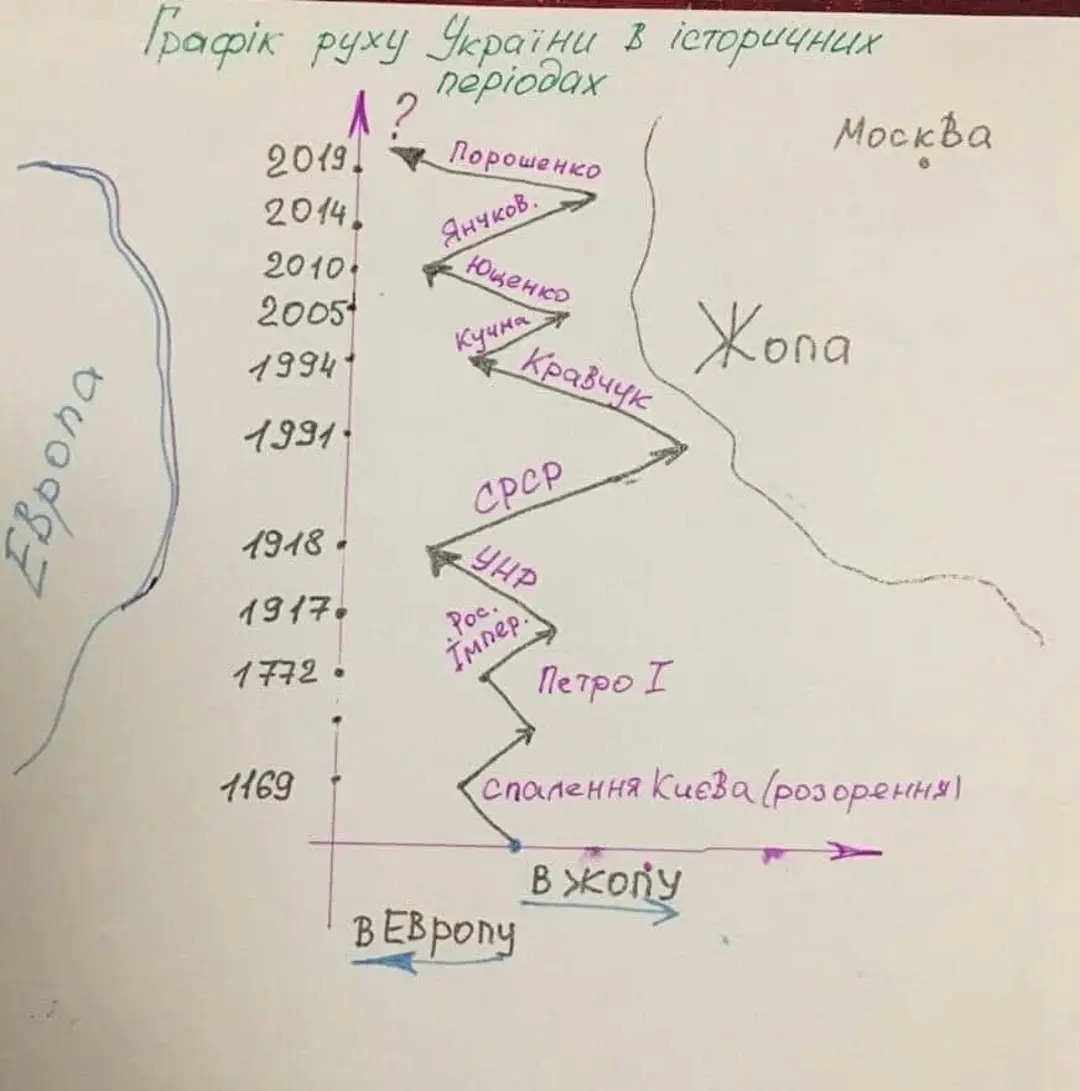 Графік руху України в історичних
періодах
?
Москва
2019
Порошенко
2014
Янчков.
2010
Ющенко
2005
Кучма
Жопа
1994
Кравчук
Европа
1991
СРСР
1918
УНР
1917
Рос.
Імпер.
1772
Петро І
1169
спалення Києва (розорення)
В жопу
В Европу